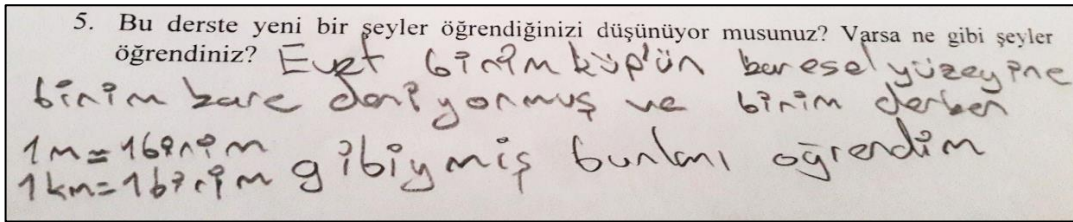 5. Bu derste yeni bir şeyler öğrendiğinizi düşünüyor musunuz? Varsa ne gibi şeyler
öğrendiniz? Evet birim küp'ün karesel yüzeyine
birim kare deniyormuş ve birim derken
1m=1birim
1km=1birim gibiymiş bunları oğrendim